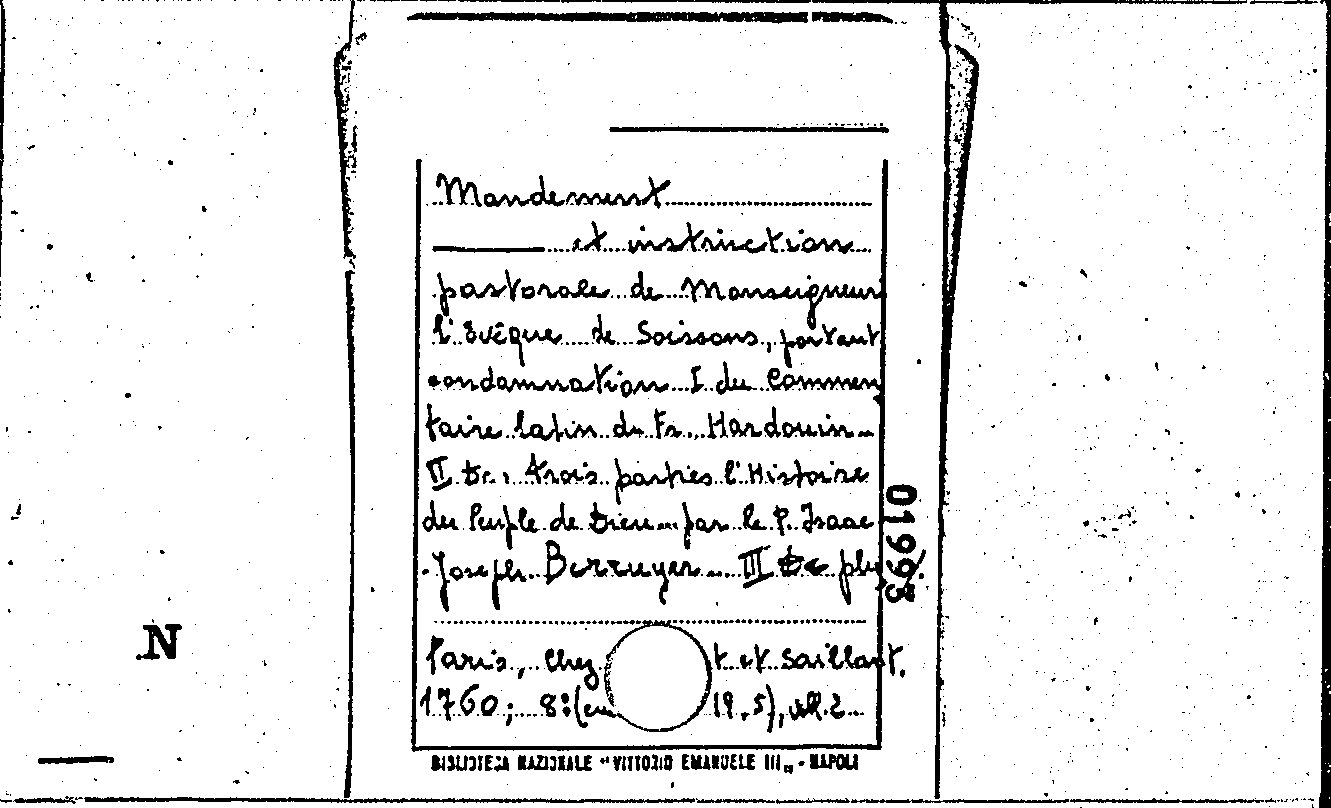 Mandement
et instruction
pastorale de Monseigneur
l'Evêque de Soissons, portant
condamnation I du Commen
taire latin du Fr. Hardouin
II De trois parties l'Histoire
du Peuple de Dieu par le P. Isaac
Joseph Berruyer III De plu
01993
Paris, Chez t et Saillant.
1760; 8º (cm 19.5), vol. 2
BIBLIOTECA NAZIONALE "VITTORIO EMANUELE III" - NAPOLI
N